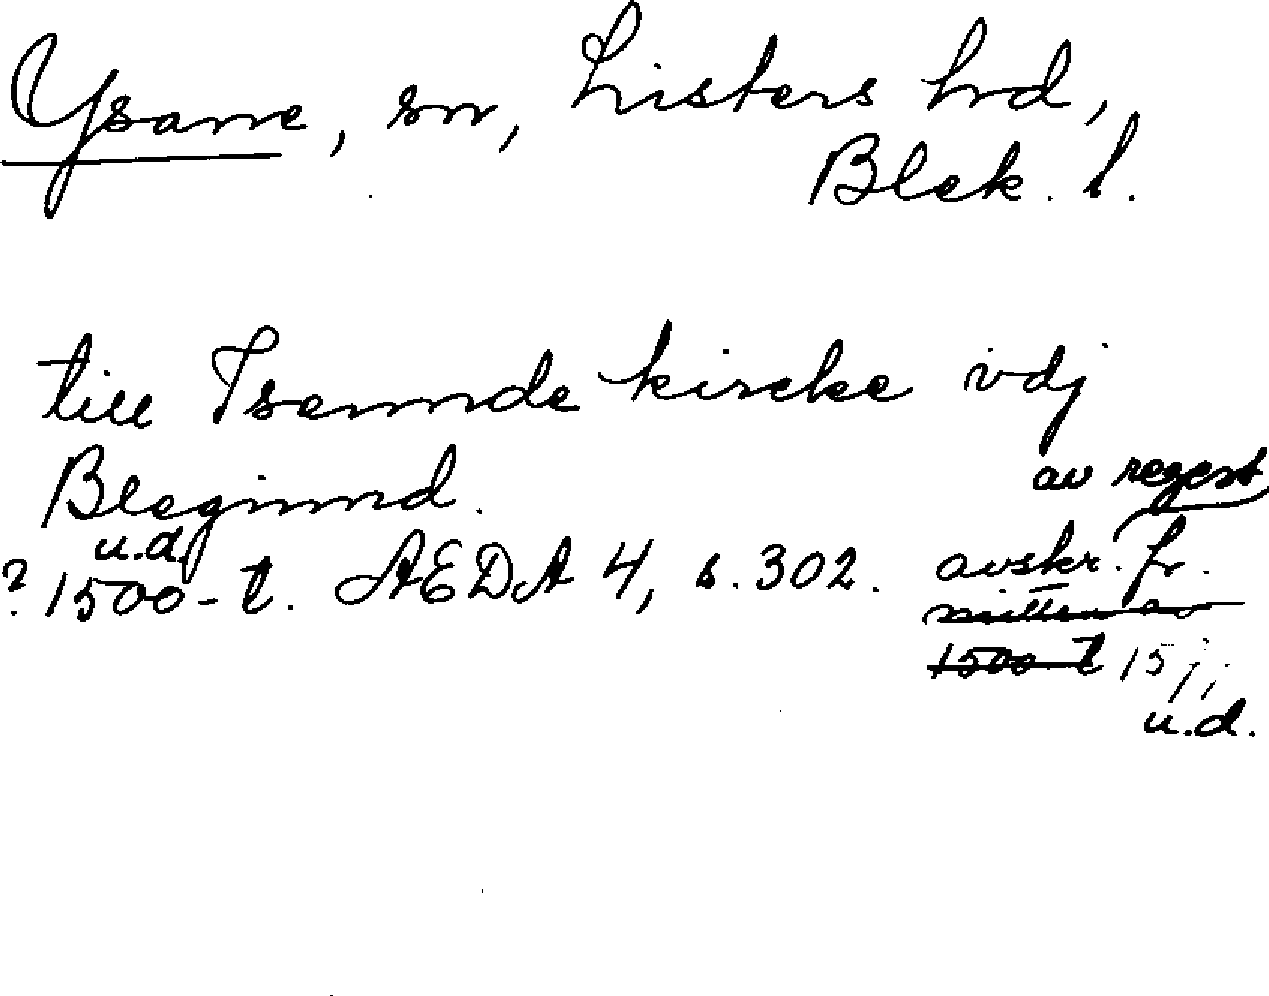 Ysane, sn, Listers hd,
Blek. l.
till Isennde kircke vdj
Blegind.
av regest
u.d.
? 1500-t. AEDA 4, s. 302. avskr. fr.
mitten av
1500-t 15
u.d.